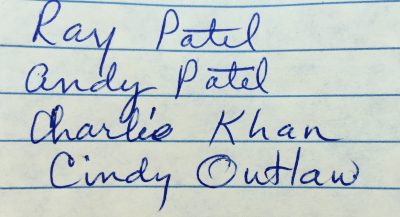 Ray Patel
Andy Patel
Charlie Khan
Cindy Outlaw